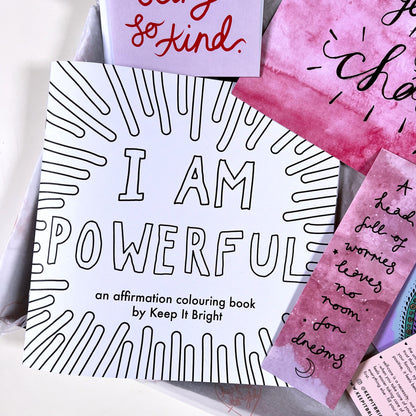 so kind.
I AM
POWERFUL
an affirmation colouring book
by Keep It Bright
A
head
full of
worries
leaves
no
room
for
dreams